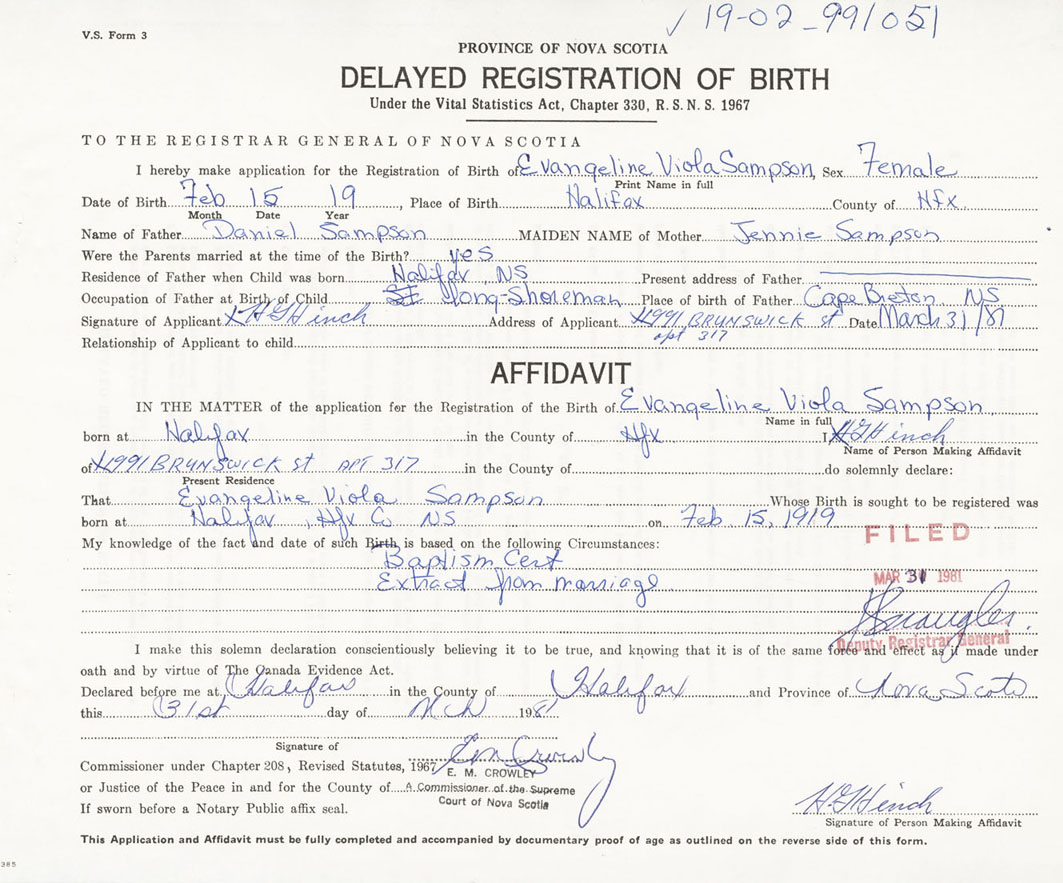 ✓ 19-02-991051
V.S. Form 3
PROVINCE OF NOVA SCOTIA
DELAYED REGISTRATION OF BIRTH
Under the Vital Statistics Act, Chapter 330, R.S.N.S. 1967
TO THE REGISTRAR GENERAL OF NOVA SCOTIA
I hereby make application for the Registration of Birth of Evangeline Viola Sampson, Sex Female
Print Name in full
Date of Birth Feb 15 19, Place of Birth Halifax County of Hfx
Month Date Year
Name of Father Daniel Sampson MAIDEN NAME of Mother Jennie Sampson
Were the Parents married at the time of the Birth? yes
Residence of Father when Child was born Halifax, NS Present address of Father
Occupation of Father at Birth of Child Long-Shoreman Place of birth of Father Cape Breton NS
Signature of Applicant X H G Hinch Address of Applicant 1991 BRUNSWICK St Date March 31/81
apt 317
Relationship of Applicant to child
AFFIDAVIT
IN THE MATTER of the application for the Registration of the Birth of Evangeline Viola Sampson
Name in full
born at Halifax in the County of Hfx I H G Hinch
Name of Person Making Affidavit
of 1991 BRUNSWICK St APT 317 in the County of do solemnly declare:
Present Residence
That Evangeline Viola Sampson Whose Birth is sought to be registered was
born at Halifax, Hfx Co NS on Feb. 15, 1919
FILED
My knowledge of the fact and date of such Birth is based on the following Circumstances:
Baptism Cert
Extract from marriage
MAR 30 1981
Deputy Registrar General
I make this solemn declaration conscientiously believing it to be true, and knowing that it is of the same force and effect as if made under
oath and by virtue of The Canada Evidence Act.
Declared before me at Halifax in the County of Halifax and Province of Nova Scotia
this 31st day of Mch 1981
Signature of
Commissioner under Chapter 208, Revised Statutes, 1967
E. M. CROWLEY
or Justice of the Peace in and for the County of A Commissioner of the Supreme
Court of Nova Scotia
If sworn before a Notary Public affix seal.
H G Hinch
Signature of Person Making Affidavit
This Application and Affidavit must be fully completed and accompanied by documentary proof of age as outlined on the reverse side of this form.
385